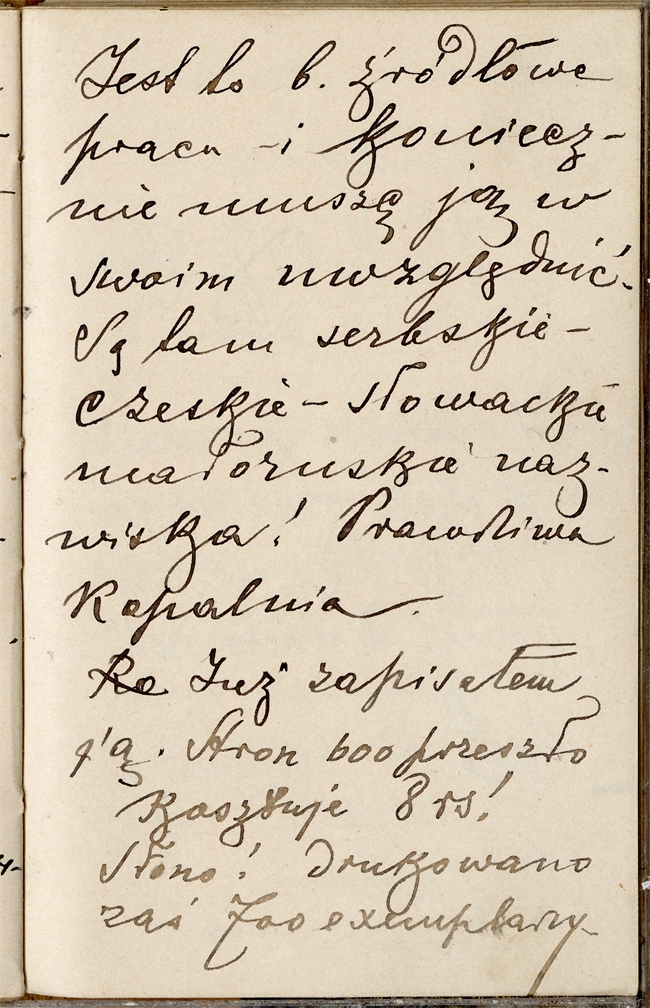 Jest to b. źródłowa
praca - i koniecz-
nie muszę ją w
swoim uwzględnić.
Są tam serbskie -
czeskie - słowackie
małoruskie naz-
wiska! Prawdziwa
Kopalnia.
Ko Już zapisałem
ją. Stron 600 przeszło
kosztuje 8 rs!
Słono! drukowano
zaś 700 exemplarzy